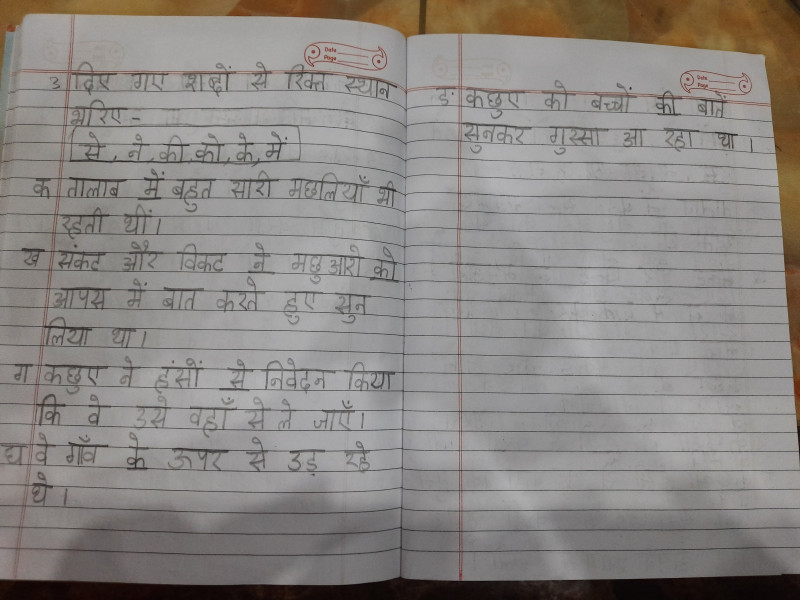 Date
Page
3 दिए गए शब्दों से रिक्त स्थान
भरिए-
से, ने, की, को, के, में
क तालाब में बहुत सारी मछलियाँ भी
रहती थीं।
ख संकट और विकट ने मछुआरो को
आपस में बात करते हुए सुन
लिया था।
ग कछुए ने हंसों से निवेदन किया
कि वे उसे वहाँ से ले जाएँ।
घ वे गाँव के ऊपर से उड़ रहे
थे।
Date
Page
ङ कछुए को बच्चों की बातें
सुनकर गुस्सा आ रहा था।